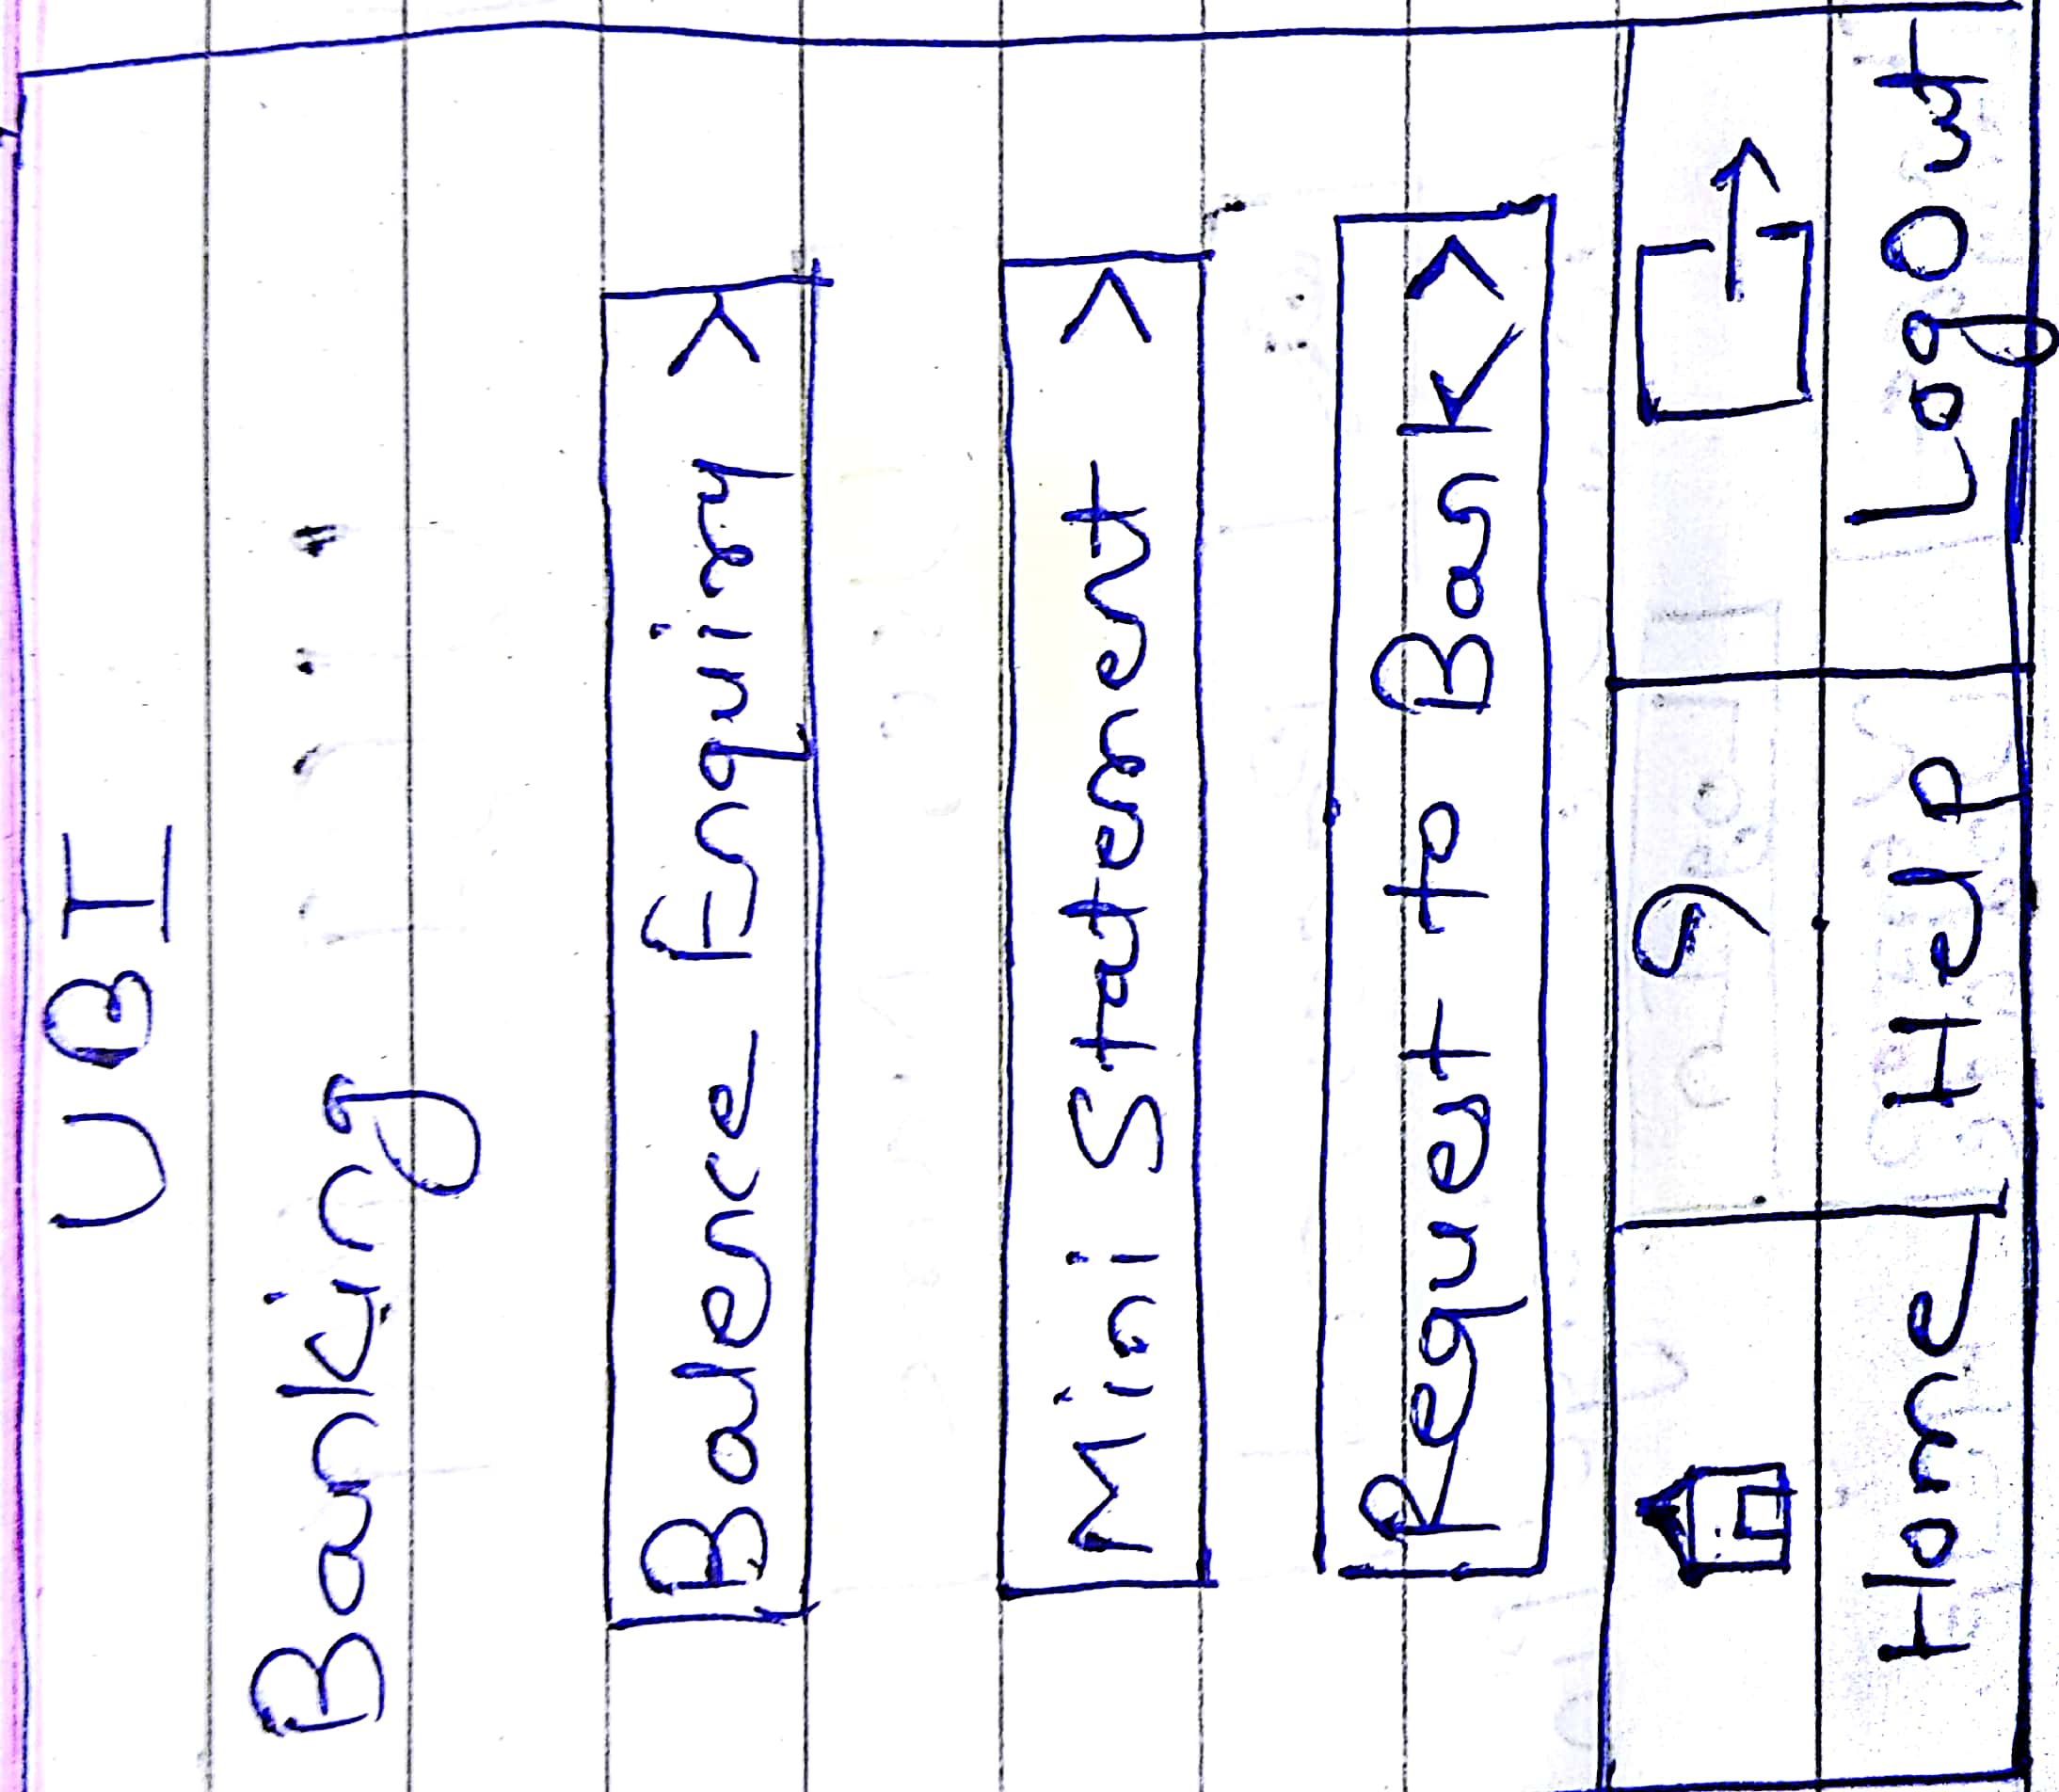 UBI
Banking
Balence Enquiry >
Mini Statement >
Request to Bank >
?
Home Help LogOut